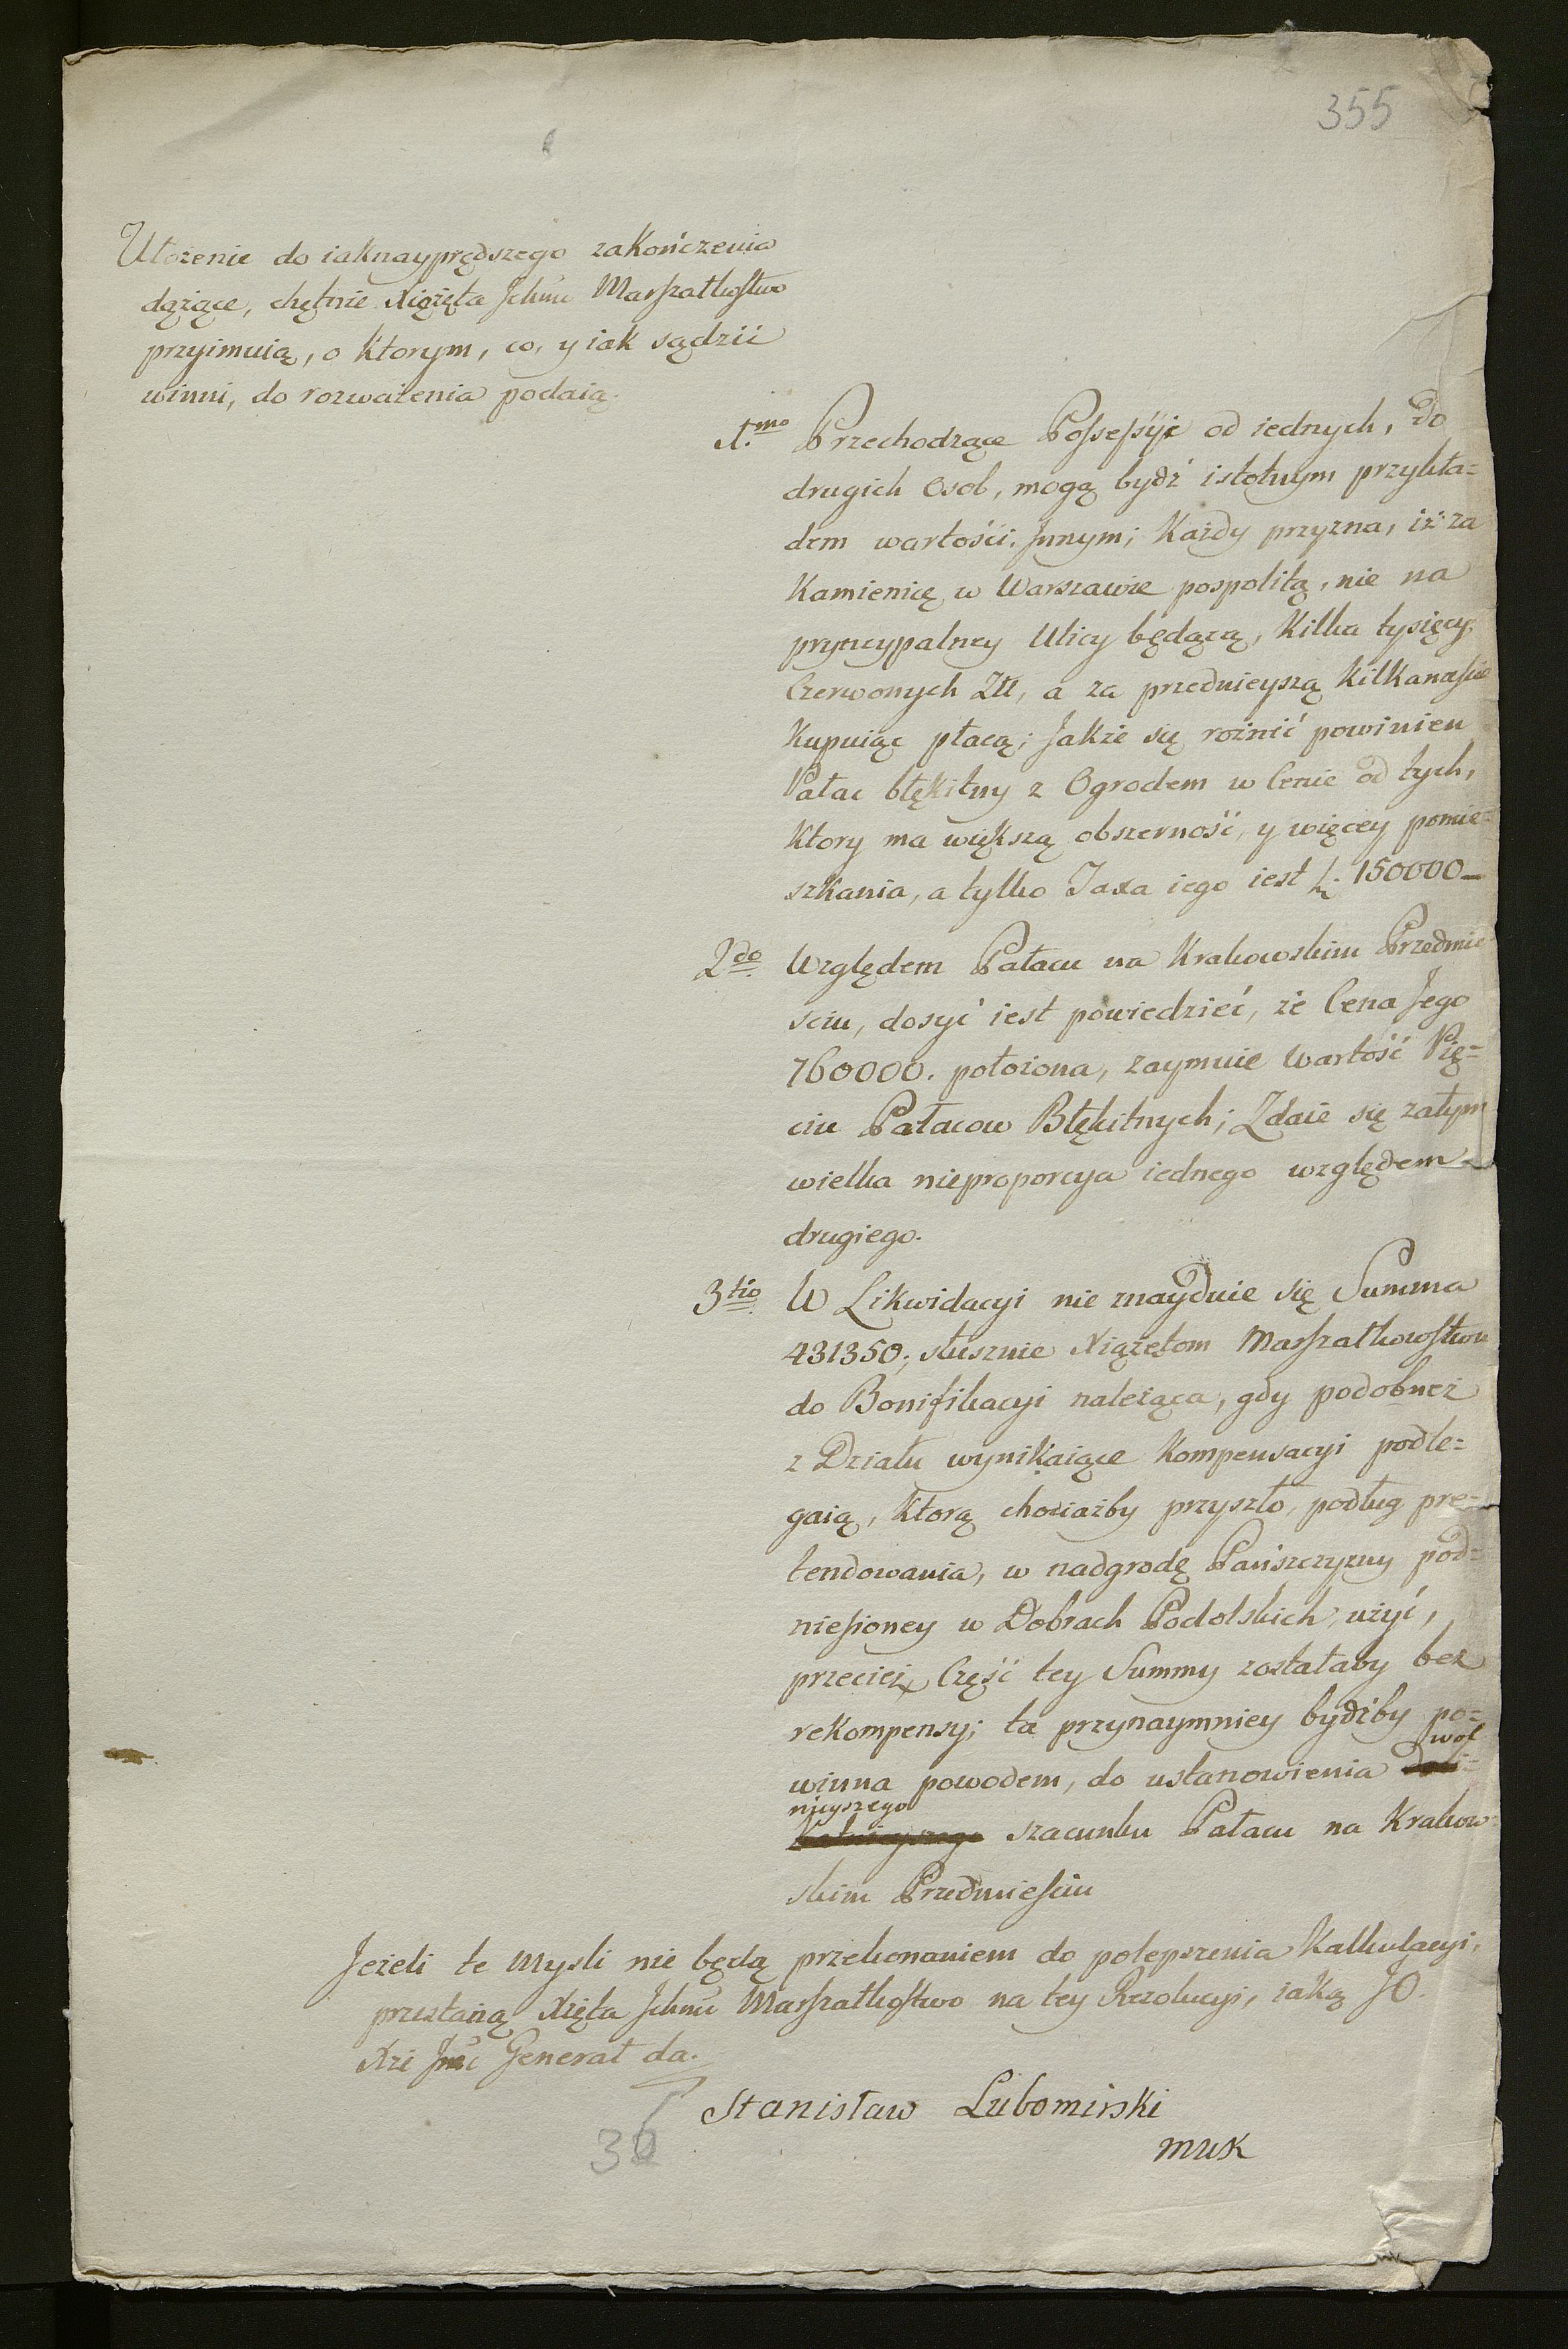 355
Ułożenie do iaknayprędszego zakończenia
dążące, chętnie Xiążęta Ichmć Marszałkostwo
przyimuią, o ktorym, co, y iak sądzić
winni, do rozważenia podaią.
1.mo Przechodzące Possessyie od iednych, do
drugich Osob, mogą bydź istotnym przykła=
dem wartości Innym; Każdy przyzna, iż za
Kamienicę w Warszawie pospolitą, nie na
pryncypalney Ulicy będącą, kilka tysięcy
Czerwonych Złł, a za przednieyszą kilkanaście
kupuiąc płacą; Jakże się rożnić powinien
Pałac błękitny z Ogrodem w Cenie od tych,
ktory ma większą obszerność, y więcey pomie=
szkania, a tylko Taxa iego iest 150000_
2do Względem Pałacu na Krakowskim Przedmie
sciu, dosyć iest powiedzieć, że Cena Jego
760000. położona, zaymuie Wartość Pię=
ciu Pałacow Błękitnych; Zdaie się zatym
wielka nieproporcya iednego względem
drugiego.
3tio W Likwidacyi nie znayduie się Summa
431350; słusznie Xiążętom Marszałkowstwu
do Bonifikacyi należąca, gdy podobneż
z Działu wynikaiące Kompensacyi podle=
gaią, ktorą chociażby przyszło, podług pre=
tendowania, w nadgrodę Pańszczyzny pod=
niesioney w Dobrach Podolskich użyć,
przecież Część tey Summy zostałaby bez
rekompensy; ta przynaymniey bydźby po=
winna powodem, do ustanowienia wol
nieyszego szacunku Pałacu na Krakow=
skim Przedmieściu
Jeżeli te Mysli nie będą przekonaniem do polepszenia Kalkulacyi,
przestaną Xżęta Ichmć Marszałkostwo na tey Rezolucyi, iaką JO.
Xże Jmć Generał da.
Stanisław Lubomirski
mwk
36